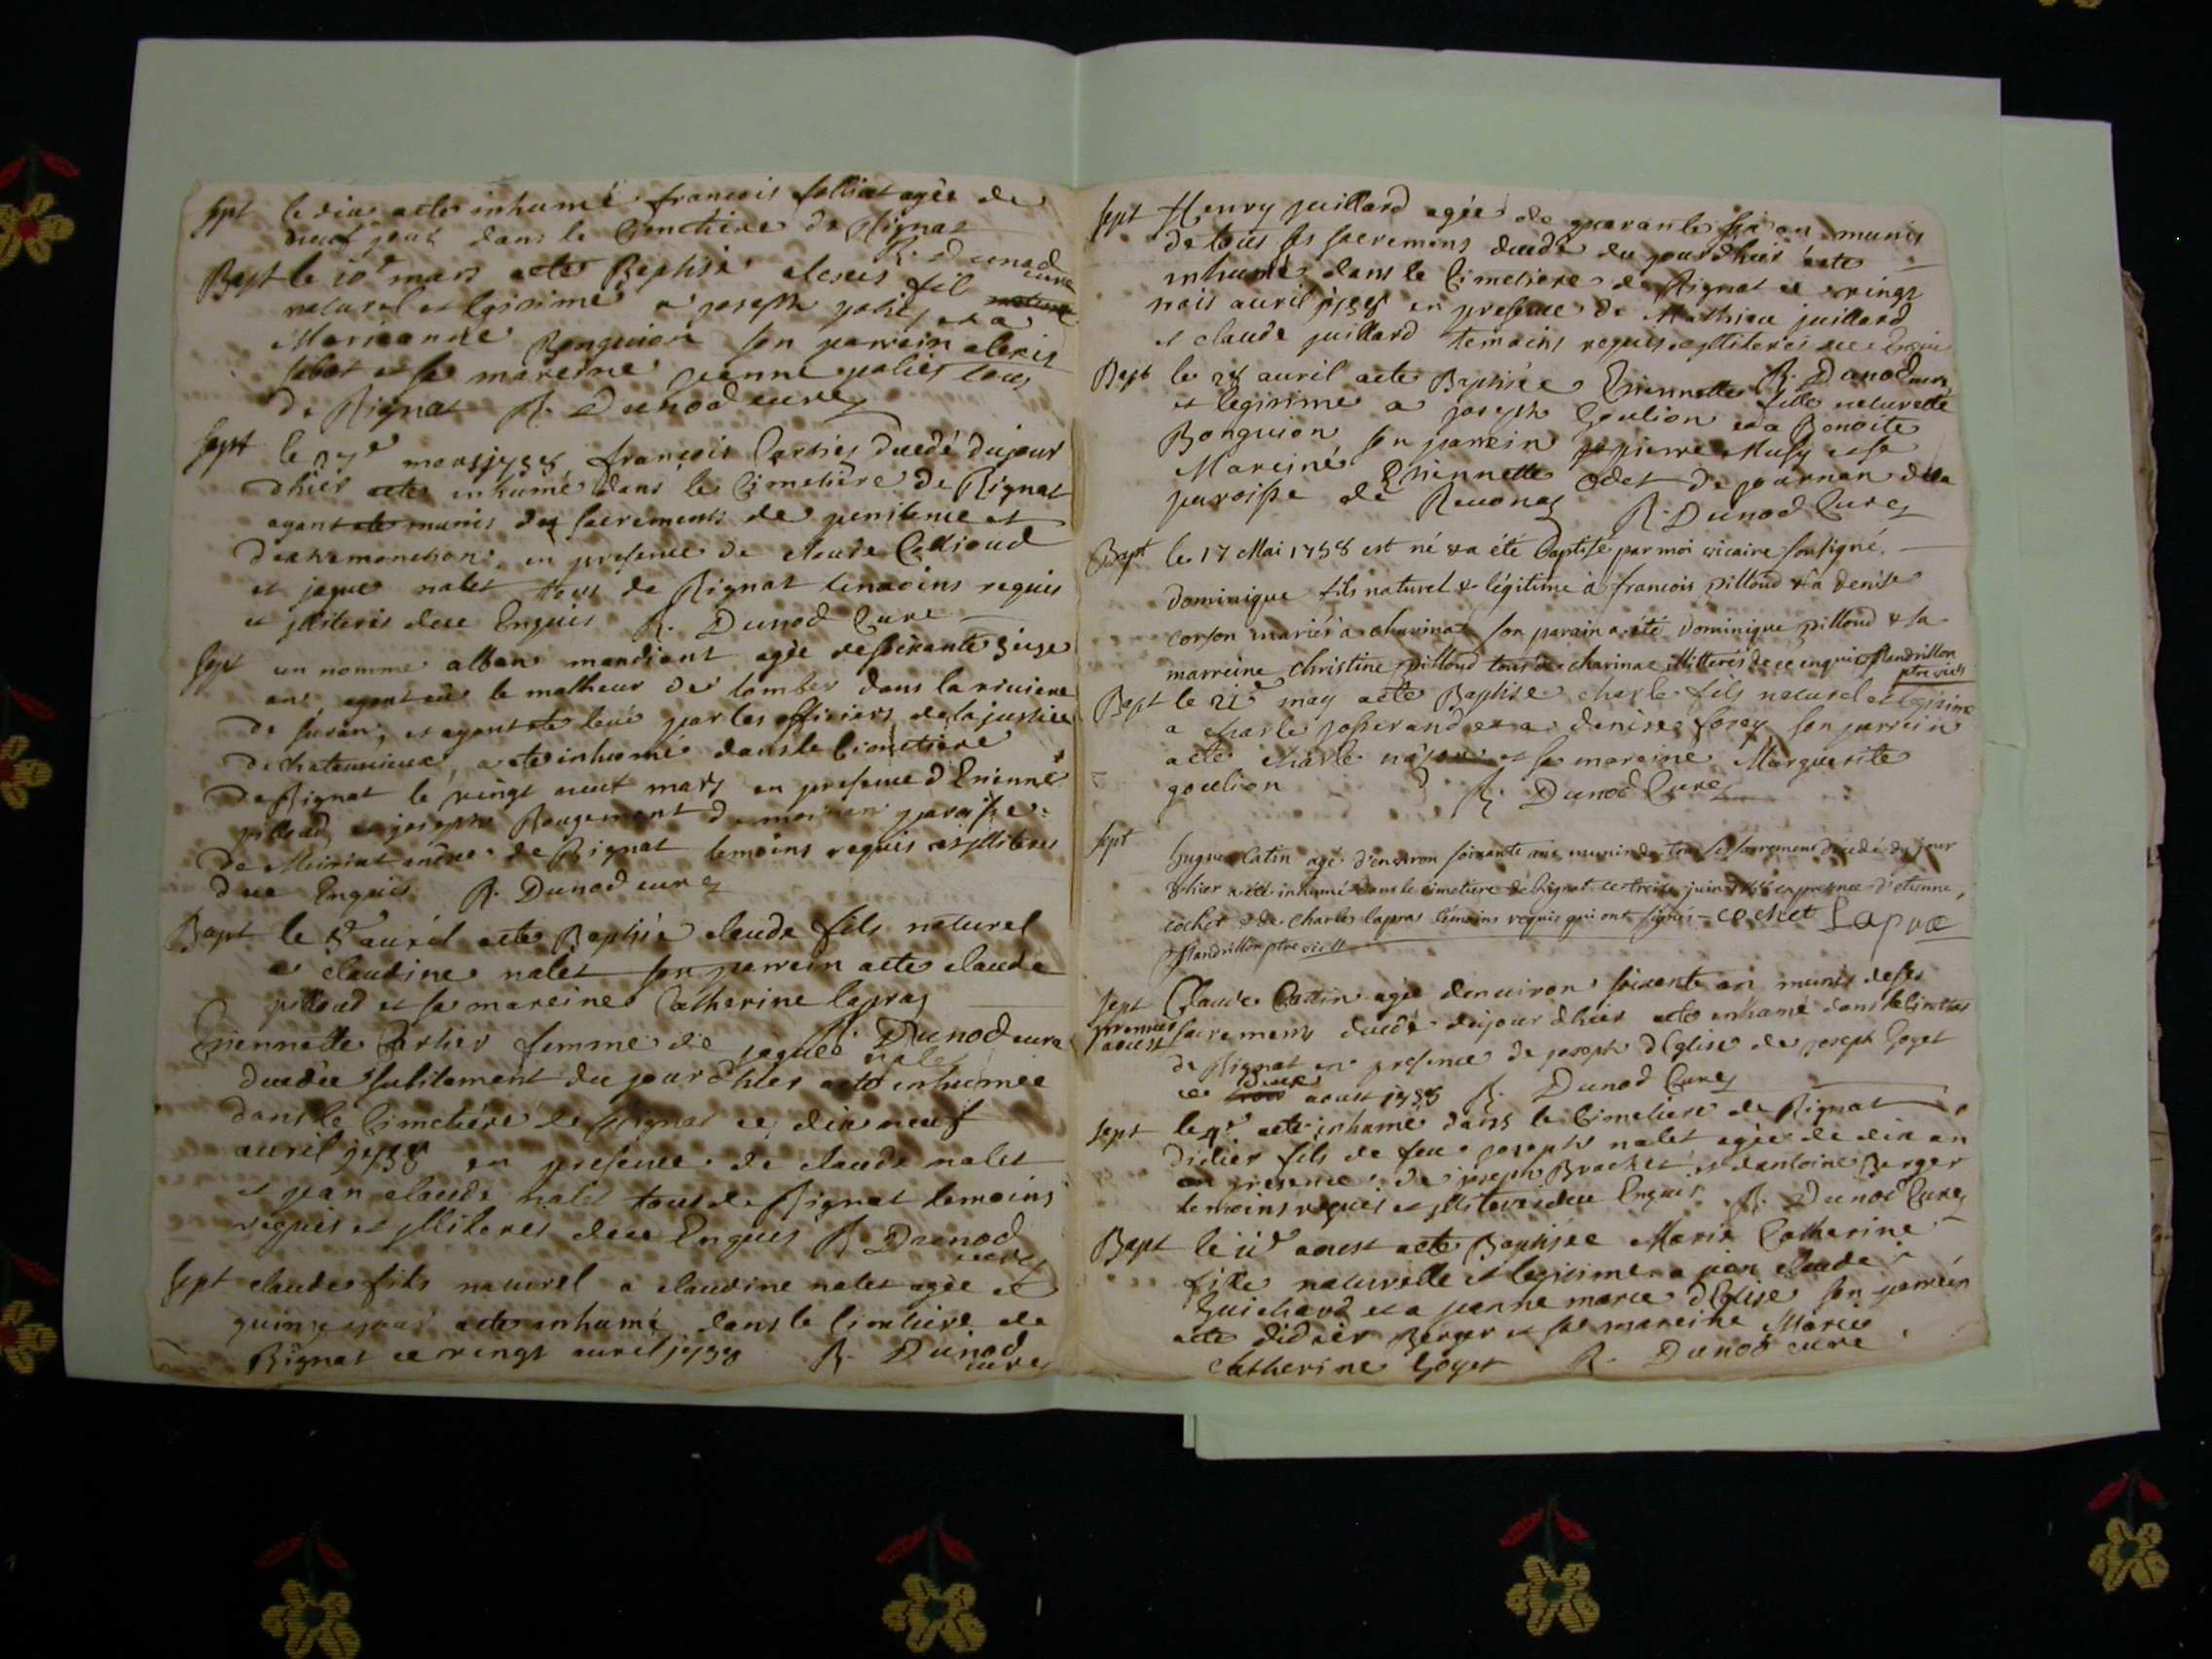 Sept le dix a ete inhumé francois folliat agée de
neuf jour dans le Cimetiere de Rignat
R. Dunod cure
Bapt le 10e mars a ete Baptisé alexis fil
naturel et legitime a joseph et a
Marieanne Bonguion son parrein alexis
et sa mareine jeanne tous
de Rignat R. Dunod cure
Sept le mars 1758 françois Cartier decedé du jour
dhier a ete inhumé dans le Cimetiere de Rignat
ayant ete munis des sacrements de penitence et
dextremonction en presence de claude
et jaque nalet tous de Rignat temoins requis
et illiteres dece Enquis R. Dunod Cure
Sept un nomme alban mandiant agée de
ans ayant eu le malheur de tomber dans la riviere
de suran, et ayant ete levé par les officiers de la justice
de a ete inhumé dans le Cimetiere
de Rignat le vingt neuf mars en presence d'Etienne
pilloud et joseph Rougemont de paroisse
de Meiriat de Rignat temoins requis et illiteres
dece Enquis R. Dunod cure
Bapt le 8e auril a ete Baptisé claude fils naturel
a claudine nalet son parrein a ete claude
pilloud et sa mareine Catherine lapras
R. Dunod cure
Etiennette Cartier femme de jaques nalet
decedée subitement du jour d'hier a ete inhumée
dans le Cimetiere de Rignat ce dix neuf
auril 1758 en presence de claude nalet
et jean claude nalet tous de Rignat temoins
requis et illiteres dece Enquis R. Dunod
cure
Sept claude fils naturel a claudine nalet agée de
quinze jour a ete inhumé dans le Cimetiere de
Rignat ce vingt auril 1758 R. Dunod
cure
Sept Henry juillard agée de quarante six an munis
de tous ses sacremens decedé du jour dhier a ete
inhumé dans le Cimetiere de Rignat ce vingt
trois auril 1758 en presence de Mathieu juillard
et claude juillard temoins requis et illiteres dece Enquis
R. Dunod cure
Bapt le 28 auril a ete Baptisée Etiennette fille naturelle
et legitime a joseph Goulion et a Benoite
Bonguion son parrein pierre Musy et sa
Mareine Etiennette Odet de journan de la
paroisse de Reuonas R. Dunod Cure
Bapt le 17 Mai 1758 est né & a été baptisé par moi vicaire soussigné,
dominique fils naturel & légitime à francois pilloud & a denise
corson mariés a charinat son parain a été Dominique pilloud & sa
marreine Christine pilloud tous de charinat illiterés de ce enquis flandrillon
ptre vic
Bapt le 21e may a ete Baptisé charle fils naturel et legitime
a charle josserand et a denise son parrein
a ete charle et sa mareine Marguerite
goulion R. Dunod Cure
Sept hugue Catin agé d'environ soixante ans muni de tous ses sacremens décedé du jour
d'hier a été inhumé dans le cimetiere de Rignat ce treize juin 1758 en presence d'etienne
cochet & de charles lapras témoins requis qui ont signés - cochet Lapra
flandrillon ptre vic
Sept Claude Cattin agée denuiron soixante an munis de ses
premier aoust sacremens decedé du jour dhier a ete inhumé dans le Cimetiere
de Rignat en presence de joseph d'Eglise de joseph Goyet
ce deux aoust 1758 R. Dunod Cure
Sept le 9e a ete inhumé dans le Cimetiere de Rignat
Didier fils de feu joseph nalet agée de dix an
en presence de joseph Brachet et dantoine Berger
temoins requis et illiteres dece Enquis R. Dunod Cure
Bapt le 11e aoust a ete Baptisée Marie Catherine
fille naturelle et legitime a jean claude
Guichard et a jeanne marie d'Eglise son parrein
a ete didier Berger et sa mareine Marie
Catherine Goyet R. Dunod cure